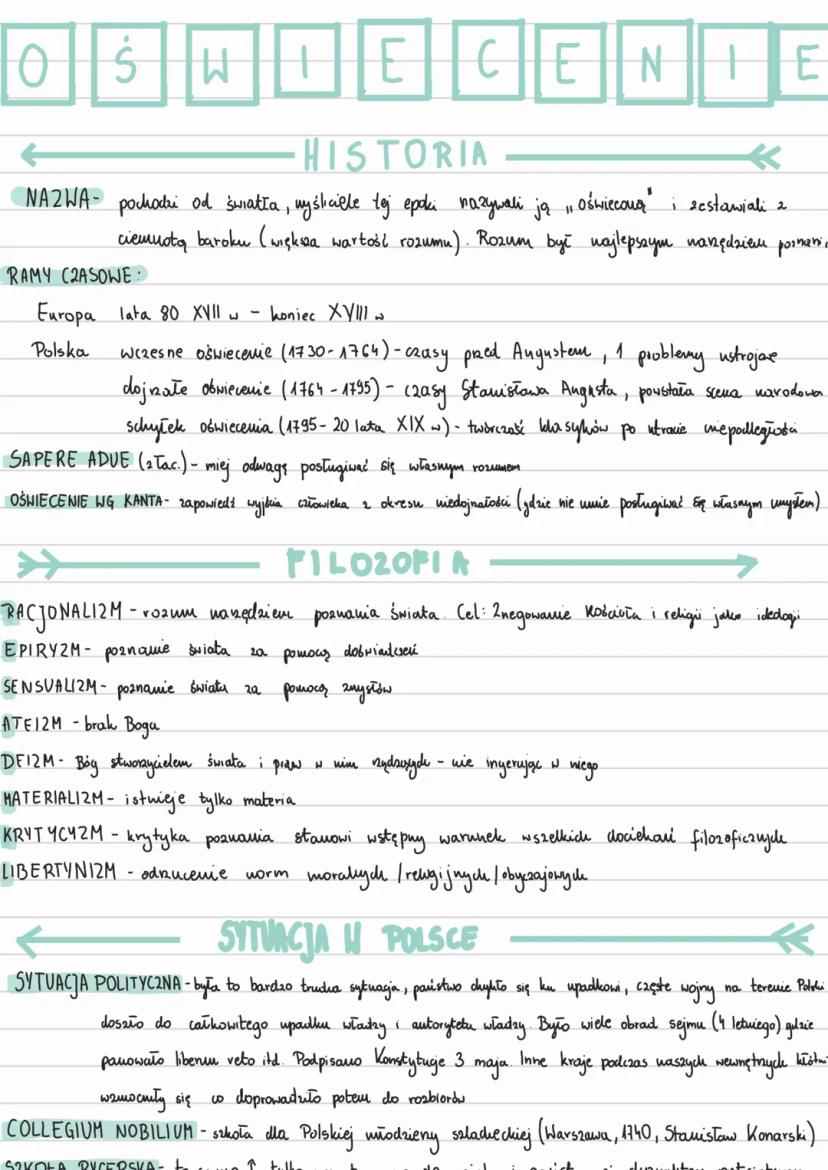 OŚWIECENIE
HISTORIA
NAZWA - pochodzi od światła, myśliciele tej epoki nazywali ją „oświeconą" i zestawiali z
ciemnotą baroku (większa wartość rozumu). Rozum był najlepszym narzędziem
RAMY CZASOWE:
Europa lata 80 XVII w - koniec XVIII w
Polska wczesne oświecenie (1730-1764) - czasy przed Augustem, 1 problemy ustrojowe
dojrzałe oświecenie (1764-1795) - czasy Stanisława Augusta, powstała scena narodowa
schyłek oświecenia (1795-20 lata XIX w) - twórczość klasyków po utracie niepodległości
SAPERE ADUE (z łac.) - miej odwagę posługiwać się własnym rozumem
OŚWIECENIE WG KANTA - zapowiedź wyjścia człowieka z okresu niedojrzałości (gdzie nie umie posługiwać się własnym umysłem)
FILOZOFIA
RACJONALIZM - rozum narzędziem poznania świata. Cel: Znegowanie Kościoła i religii jako ideologii
EPIRYZM - poznanie świata za pomocą doświadczeń
SENSUALIZM - poznanie świata za pomocą zmysłów
ATEIZM - brak Boga
DEIZM - Bóg stworzycielem świata i praw w nim rządzących - nie ingerując w niego
MATERIALIZM - istnieje tylko materia
KRYTYCYZM - krytyka poznania stanowi wstępny warunek wszelkich dociekań filozoficznych
LIBERTYNIZM - odrzucenie norm moralnych / religijnych / obyczajowych
SYTUACJA W POLSCE
SYTUACJA POLITYCZNA - była to bardzo trudna sytuacja, państwo chyliło się ku upadkowi, częste wojny na terenie Polski
doszło do całkowitego upadku władzy i autorytetu władzy. Było wiele obrad sejmu (4 letniego) gdzie
panowało liberum veto itd. Podpisano Konstytucje 3 maja. Inne kraje podczas naszych wewnętrznych
wzmocniły się co doprowadziło potem do rozbiorów
COLLEGIUM NOBILIUM - szkoła dla Polskiej młodzieny szlacheckiej (Warszawa, 1740, Stanisław Konarski)
SZKOŁA RYCERSKA - to samo ↑ tylko